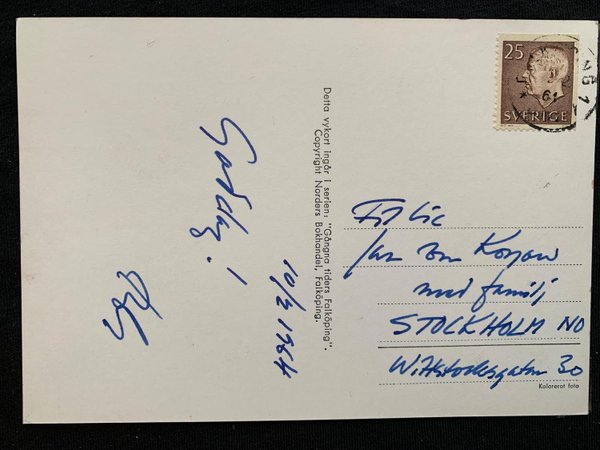 Goddag!
10/2 1964
Detta vykort ingår i serien: "Gångna tiders Falköping".
Copyright Norders Bokhandel, Falköping.
25
SVERIGE
61
Fil lic
Jan von Konow
med familj
STOCKHOLM NO
Wittstocksgatan 30
Kolorerat foto